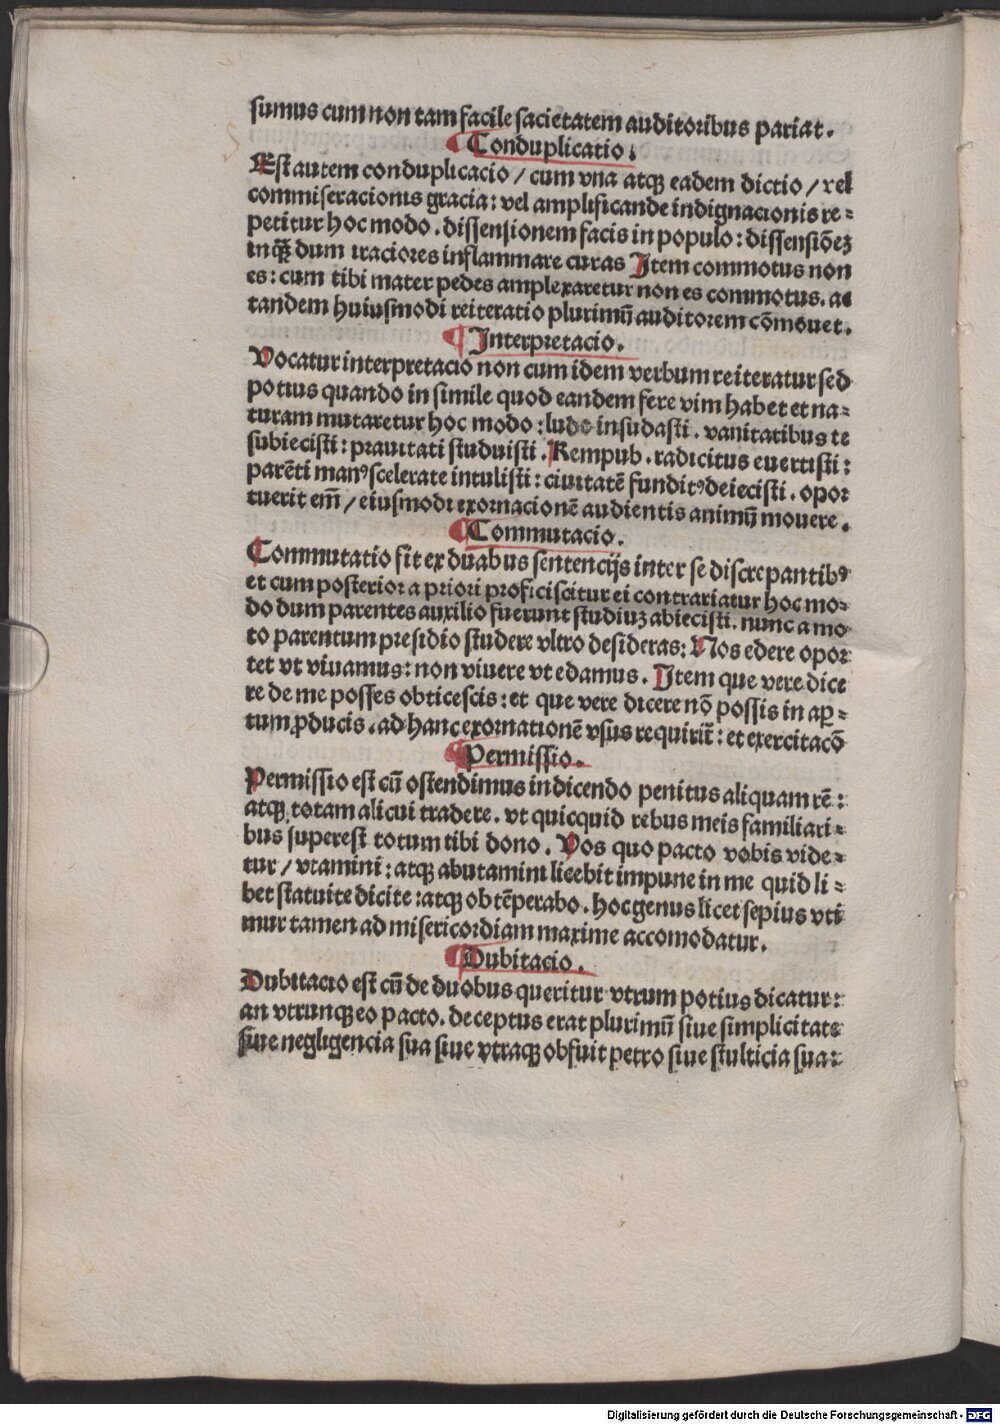 sumus cum non tam facile sacietatem auditoribus pariat.
¶Conduplicatio.
Est autem conduplicacio / cum vna atqꝫ eadem dictio / vel
commiseracionis gracia: vel amplificande indignacionis re⸗
petitur hoc modo. dissensionem facis in populo: dissensiōeꝫ
inqͣꝫ dum traciores inflammare curas Item commotus non
es: cum tibi mater pedes amplexaretur non es commotus. ac
tandem huiusmodi reiteratio plurimū auditorem cōmouet.
¶Interpretacio.
Vocatur interpretacio non cum idem verbum reiteratur sed
potius quando in simile quod eandem fere vim habet et na⸗
turam mutaretur hoc modo: ludo insudasti. vanitatibus te
subiecisti: prauitati studuisti. Rempub. radicitus euertisti:
parēti manꝰ scelerate intulisti: ciuitatē funditꝰ deiecisti. opor
tuerit em̄ / eiusmodi exornacionē audientis animū mouere.
¶Commutacio.
Commutatio fit ex duabus sentencijs inter se discrepantibꝰ
et cum posterior a priori proficiscitur ei contrariatur hoc mo⸗
do dum parentes auxilio fuerunt studiuꝫ abiecisti. nunc a mo
to parentum presidio studere vltro desideras: Nos edere opor
tet vt viuamus: non viuere vt edamus. Item que vere dice
re de me posses obticescis: et que vere dicere nō possis in ap̲⸗
tum ꝓducis. ad hanc exornationē vsus requirit̄: et exercitacō
¶Permissio.
Permissio est cū ostendimus in dicendo penitus aliquam rē:
atqꝫ totam alicui tradere. vt quicquid rebus meis familiari⸗
bus superest totum tibi dono. Vos quo pacto vobis vide⸗
tur / vtamini: atqꝫ abutamini licebit impune in me quid li⸗
bet statuite dicite: atqꝫ obtēperabo. hoc genus licet sepius vti
mur tamen ad misericordiam maxime accomodatur.
¶Dubitacio.
Dubitacio est cū de duobus queritur vtrum potius dicatur:
an vtrunqꝫ eo pacto. deceptus erat plurimū siue simplicitate
siue negligencia sua siue vtraqꝫ obfuit petro siue stulticia sua:
Digitalisierung gefördert durch die Deutsche Forschungsgemeinschaft - DFG